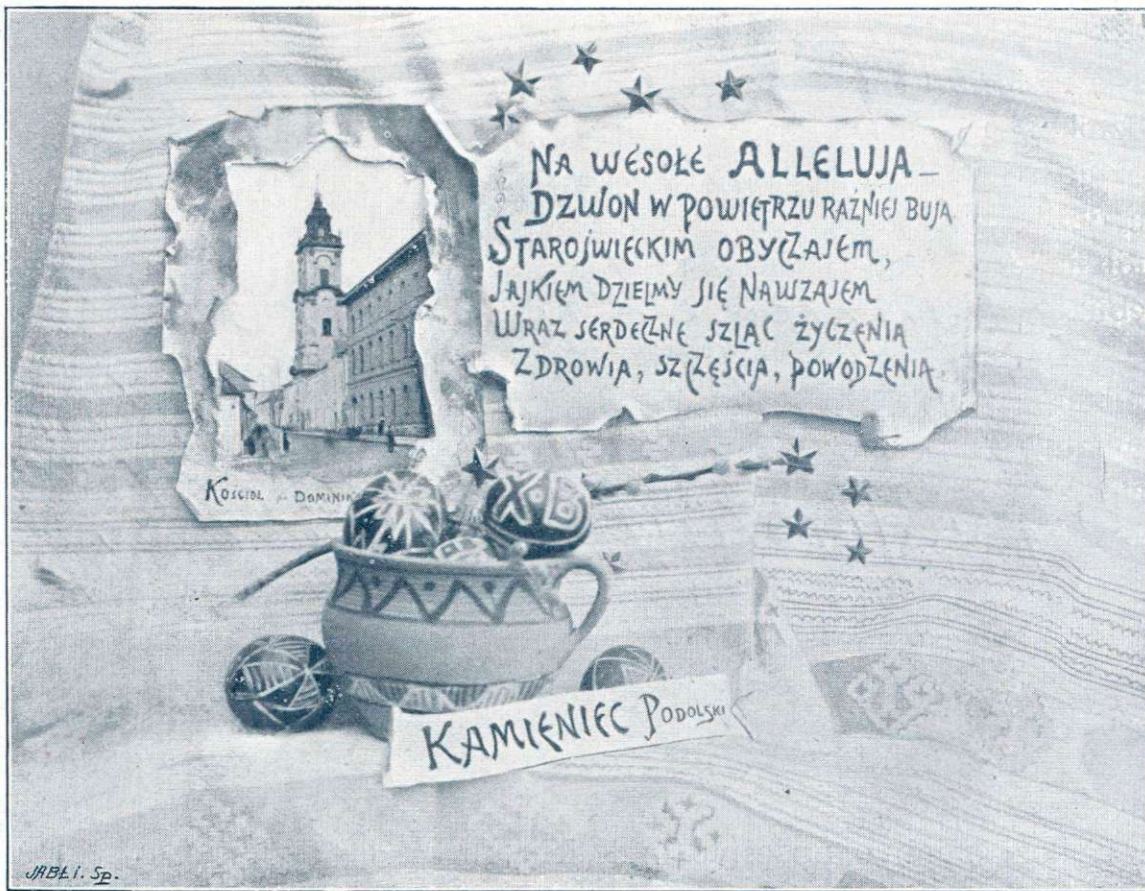 NA WESOŁE ALLELUJA –
DZWON W POWIETRZU RAŹNIEJ BUJA
STAROŚWIECKIM OBYCZAJEM,
JAJKIEM DZIELMY SIĘ NAWZAJEM
WRAZ SERDECZNE SZLĄC ŻYCZENIA
ZDROWIA, SZCZĘŚCIA, POWODZENIA.
KOŚCIÓŁ DOMINI
X·B
KAMIENIEC PODOLSKI
JABŁ i. Sp.